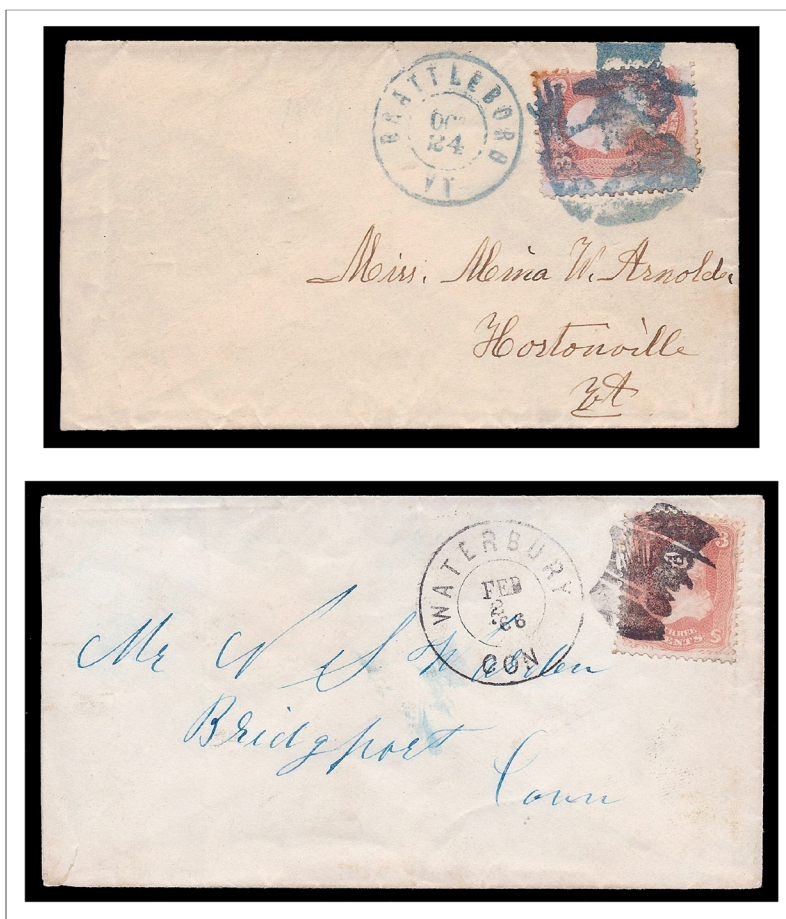 BRATTLEBORO
OCT
24
VT
Miss. Mina W. Arnold.
Hortonville
Vt
3
WATERBURY
FEB
2
'66
CON
3
THREE
CENTS
Mr N S
Bridgport
Conn